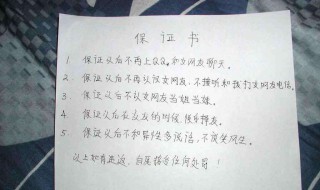 保证书
1. 保证以后不再上QQ,和女网友聊天。
2. 保证以后不再认识女网友,不接听和我打女网友电话。
3. 保证以后不认女网友当姐当妹。
4. 保证以后在交友的时候,
5. 保证以后不和异性多说话,不谈笑风生。
以上如有违返,自愿接受任何处罚!